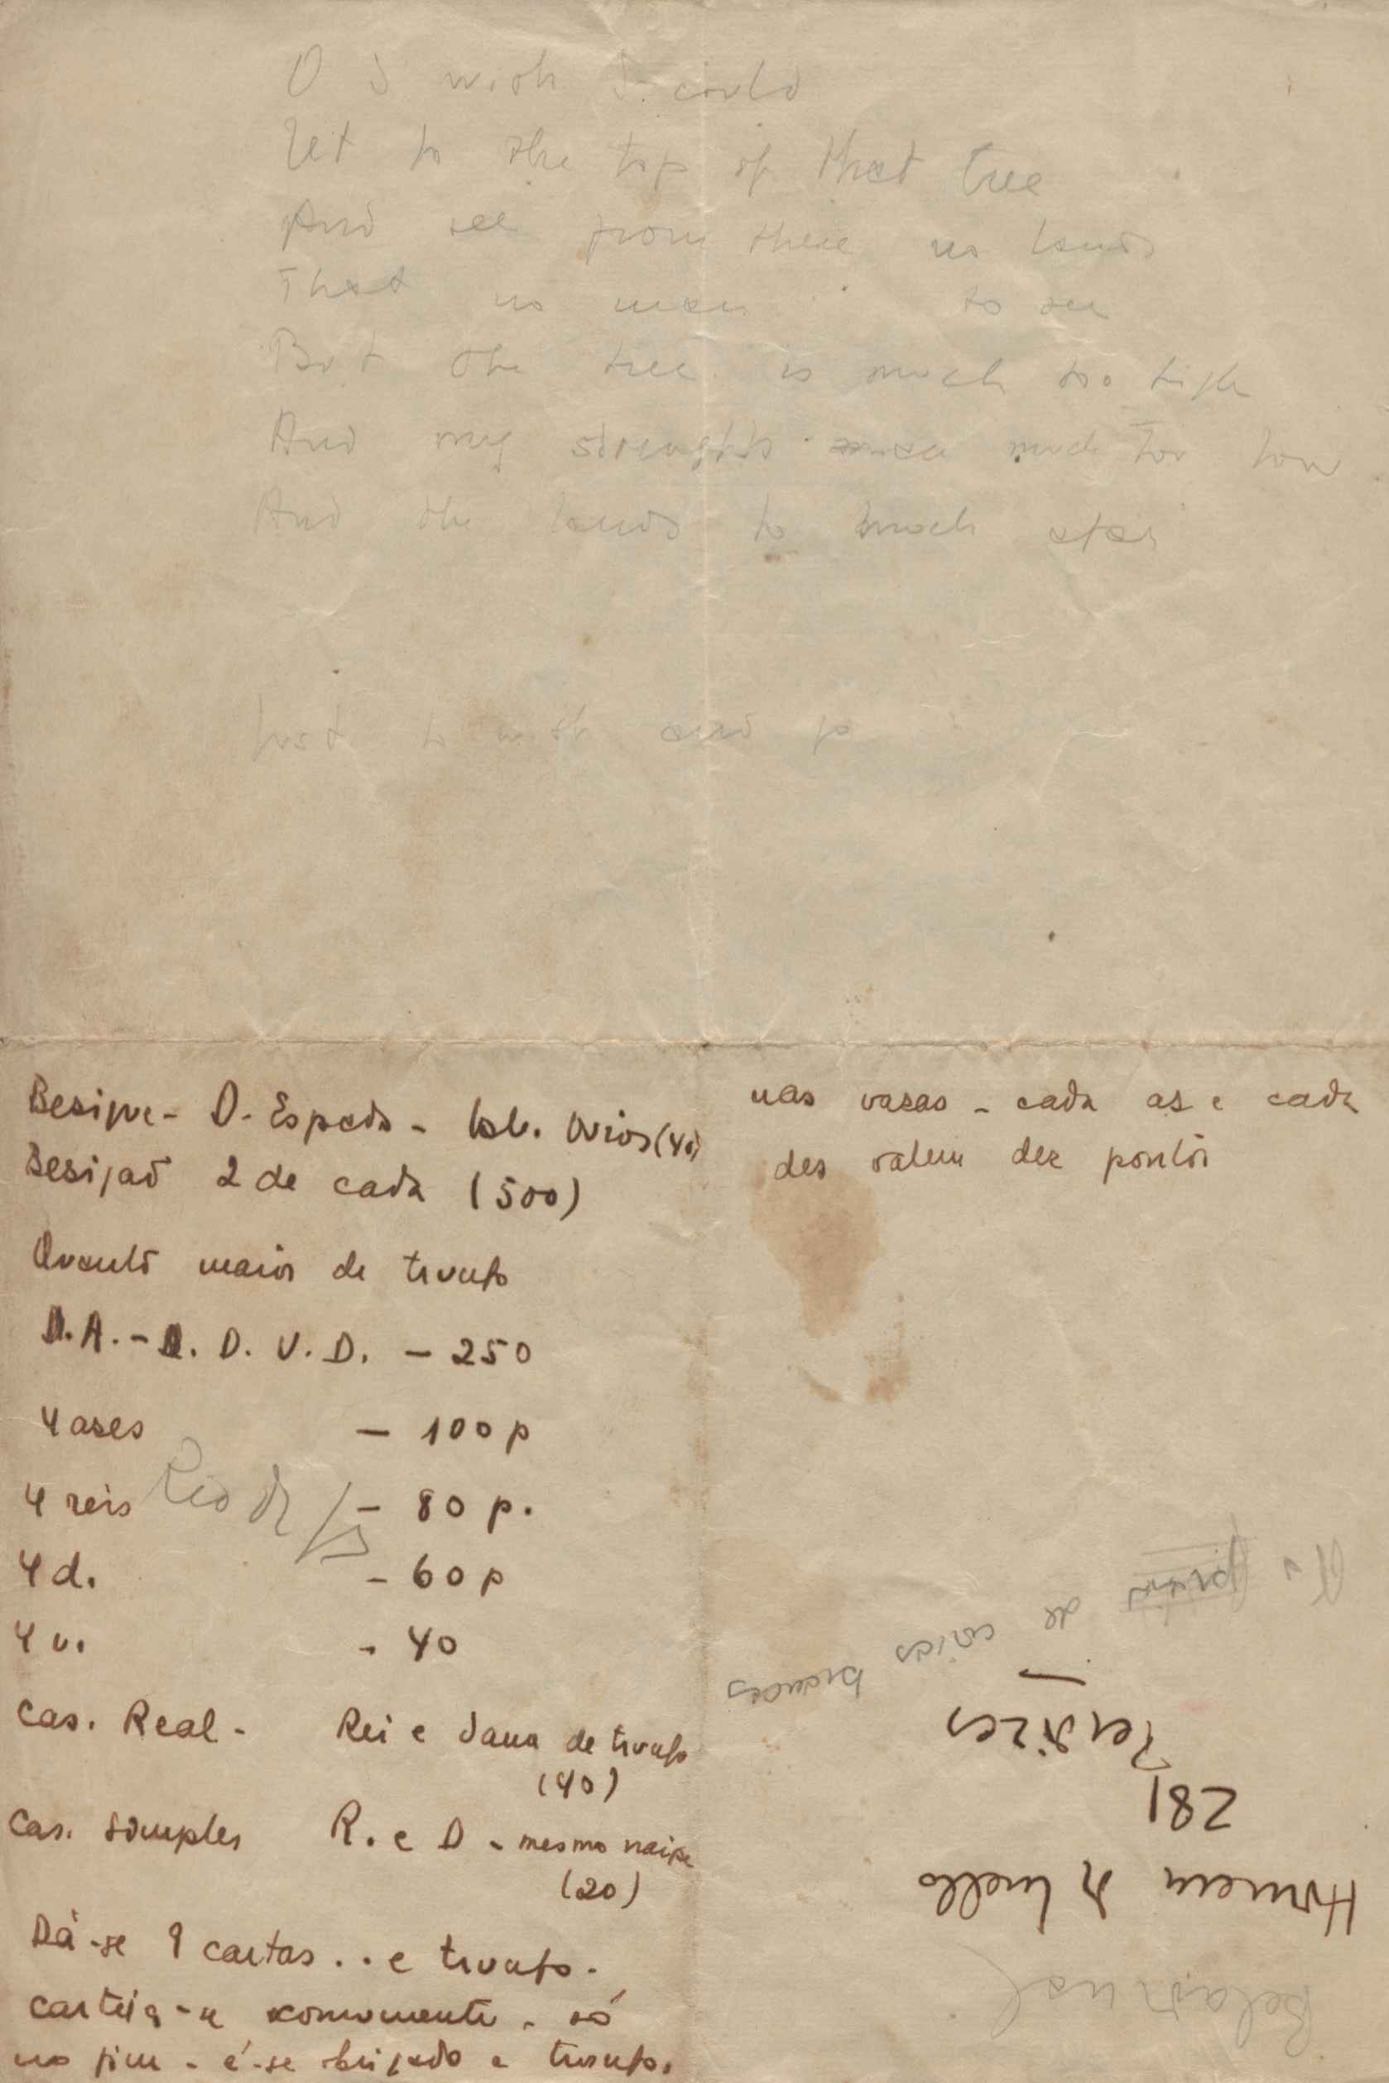 O I wish I could
Get to the top of that tree
And see from there no lands
That no man to see
But the tree is much too high
And my strenghts much too low
And the lands to much afar
Just to wish and go
Besigue - D. Espada - Val. Ouros (40)
Besigaõ 2 de cada (500)
Quanto maior de trunfo
D. A. - R. D. V. D. - 250
4 ases - 100 p
4 reis - 80 p.
Rio de
4 d. - 60 p
4 v. - 40
Cas. Real - Rei e dama de trunfo
(40)
Cas. simples R. e D - mesmo naipe
(20)
Dá-se 9 cartas . . e trunfo.
carteia-se - só
no fim - é-se obrigado a trunfo.
nas vasas - cada as e cada
dez valem dez pontos
Homem de Mello
281
Perdizes
de coisas brancas